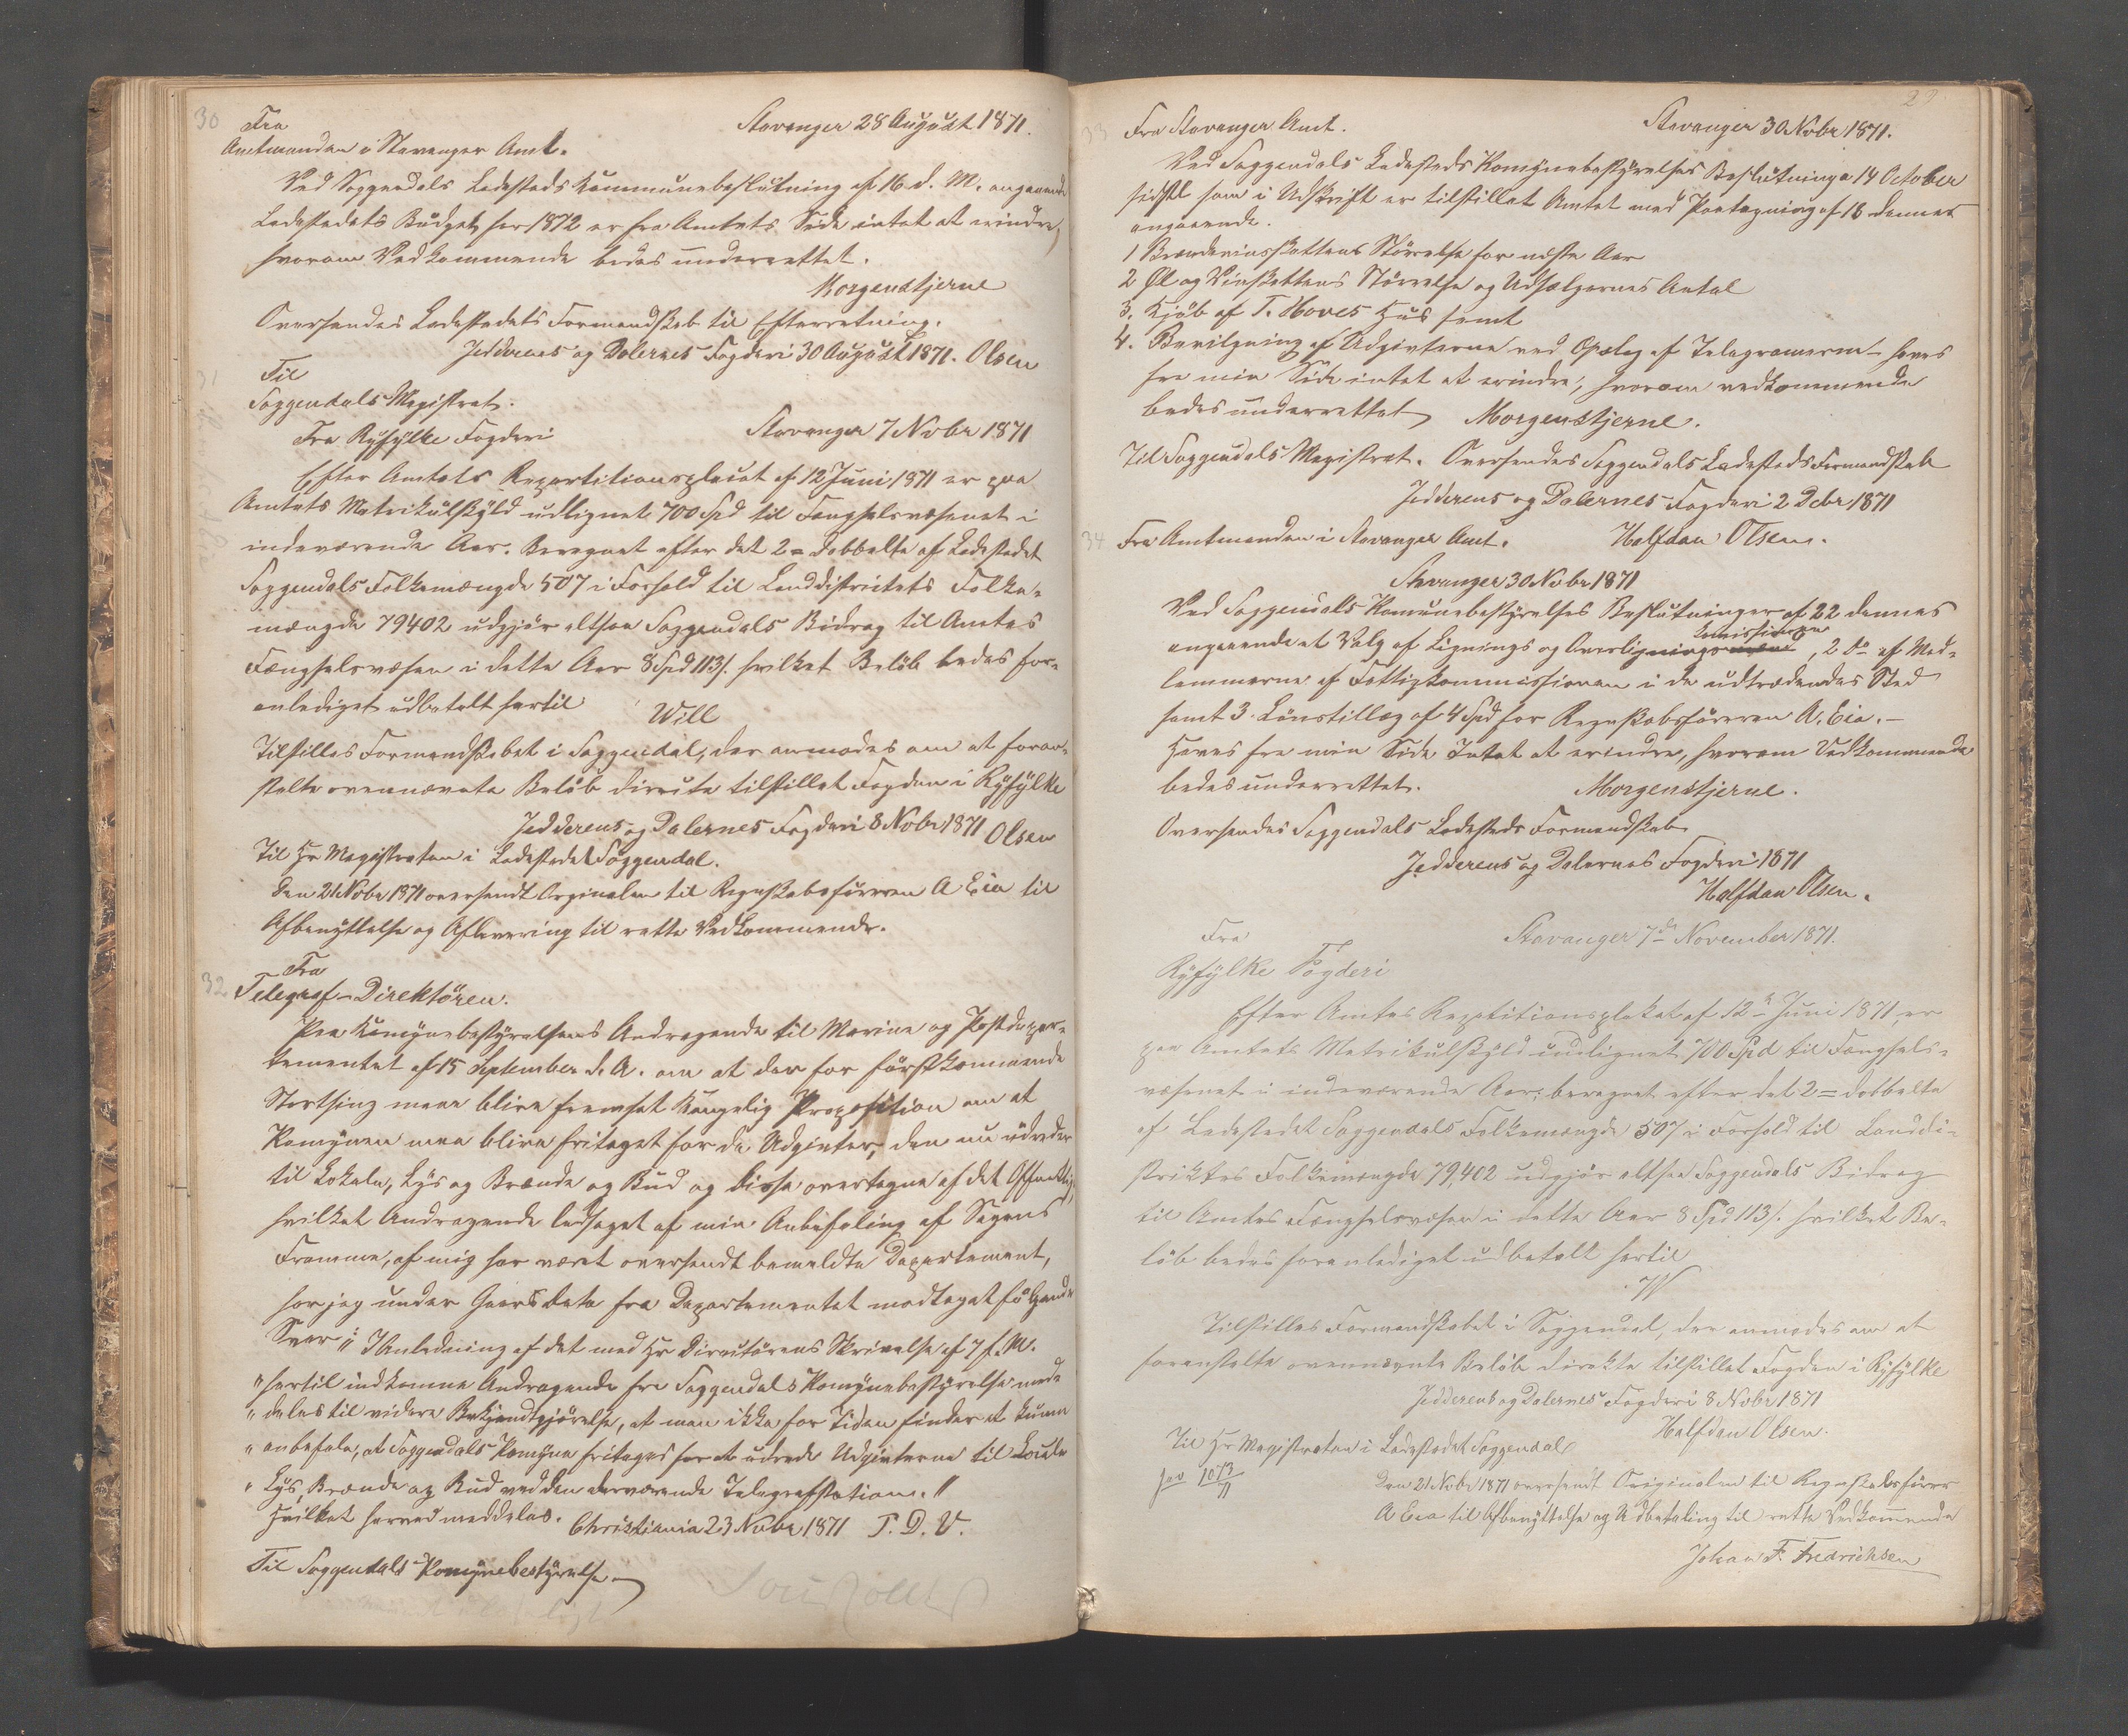 30 Fra
Stavanger 28 August 1871.
Amtmanden i Stavanger Amt.
Ved Soggendals Ladesteds Kommunebeslutning af 16 d. M. angaaende
Ladestedets Budget for 1872 er fra Amtets Side intet at erindre,
hvorom Vedkommende bedes underrettet.
Morgenstjerne
Oversendes Ladestedets Formandskab til Efterretning.
Jedderens og Dalernes Fogderi 30 August 1871. Olsen
31 Til
Soggendals Magistrat.
Fra Ryfylke Fogderi
Stavanger 7 Novbr 1871
Efter Amtets Repartitionsplacat af 12 Juni 1871 er paa
Amtets Matrikulskyld udlignet 700 Spd til Fængselsvæsenet i
indeværende Aar. Beregnet efter det 2=dobbelte af Ladestedet
Soggendals Folkemængde 507 i Forhold til Landdistrictets Folke-
mængde 79402 udgjør altsaa Soggendals Bidrag til Amtets
Fængselsvæsen i dette Aar 8 Spd 113/. hvilket Beløb bedes for-
anlediget udbetalt hertil
Will
Tilstilles Formandskabet i Soggendal, der anmodes om at foran-
stalte ovennævnte Beløb directe tilstillet Fogden i Ryfylke
Jedderens og Dalernes Fogderi 8 Novbr 1871 Olsen
Til Hr Magistraten i Ladestedet Soggendal.
Den 21 Novbr 1871 oversendt Orginalen til Regnskabsføreren A Eia til
Afbenyttelse og Aflevering til rette Vedkommende.
Fra
32 Telegraf-Direktøren.
Paa Komynebestyrelsens Andragende til Marine og Postdepar-
tementet af 15 September d. A. om at der for førstkommende
Storthing maa blive fremsat Kongelig Proposition om at
Komynen maa blive fritaget for de Udgivter, den nu udreder
til Lokale, Lys og Brænde og Bud og disse overtagne af det Offentlige,
hvilket Andragende ledsaget af min Anbefaling af Sagens
Fremme, af mig har været oversendt bemeldte Departement,
har jeg under Gaars Dato fra Departementet modtaget følgende
Svar: "I Anledning af det med Hr Directørens Skrivelse af 7 f. M.
"hertil indkomne Andragende fra Soggendals Komynebestyrelse med-
"deles til videre Bekjendtgjørelse, at man ikke for Tiden finder at kunne
"anbefale, at Soggendals Komyne fritages for at udrede Udgivterne til Locale
"Lys, Brænde og Bud ved den derværende Telegrafstation."
Hvilket herved meddeles. Christiania 23 Novbr 1871 T. D. V.
Til Soggendals Komynebestyrelse
29
33 Fra Stavanger Amt.
Stavanger 30 Novbr 1871.
Ved Soggendals Ladesteds Komynebestyrelses Beslutninger 14 October
sidstl som i Udskrift er tilstillet Amtet med Paategning af 16 dennes
angaaende.
1 Brændevinsskattens Størrelse for næste Aar
2 Øl og Vinskattens Størrelse og Udsælgernes Antal
3. Kjøb af T. Hoves Hus samt
4. Bevilgning af Udgivterne ved Opslag af Telegramerne- haves
fra min Side intet at erindre, hvorom vedkommende
bedes underrettet Morgenstjerne.
Til Soggendals Magistrat. Oversendes Soggendals Ladesteds Formandskab
Jedderens og Dalernes Fogderi 2 Debr 1871
34 Fra Amtmanden i Stavanger Amt.
Halfdan Olsen.
Stavanger 30 Novbr 1871
Ved Soggendals Komunebestyrelses Beslutninger af 22 dennes
Comissionen
angaaende at Valg af Lignings og Overligningsmænd, 2 Do af Med-
lemmerne af Fattigkommissionen i de udtrædendes Sted
samt 3. Lønstillæg af 4 Spd for Regnskabsføreren A. Eia.-
Haves fra min Side Intet at erindre, hvorom Vedkommende
bedes underrettet.
Morgenstjerne.
Oversendes Soggendals Ladesteds Formandskab
Jedderens og Dalernes Fogderi 1871
Halfdan Olsen.
Fra
Stavanger 7de November 1871.
Ryfylke Fogderi
Efter Amtes Repetitionsplakat af 12te Juni 1871, er
paa Amtets Matrikulskyld undlignet 700 Spd til Fængsels-
væsenet i indeværende Aar; beregnet efter det 2=dobbelte
af Ladestedet Soggendals Folkemængde 507 i Forhold til Landdi-
striktes Folkemængde 79,402 udgjør altsaa Soggendals Bidrag
til Amtes Fængselsvæsen i dette Aar 8 Spd 113/. hvilket Be-
løb bedes foranlediget udbetalt hertil
W
Tilstilles Formandskabet i Soggendal, der anmodes om at
foranstalte ovennævnte Beløb direkte tilstillet Fogden i Ryfylke
Jedderens og Dalernes Fogderi 8 Novbr 1871
Halfdan Olsen.
Til Hr Magistraten i Ladestedet Soggendal
Jav 1073/71
Den 21 Novbr 1871 oversendt Originalen til Regnskabsfører
A Eia til Afbenyttelse og Udbetaling til rette Vedkommende
Johan F. Fredrichsen